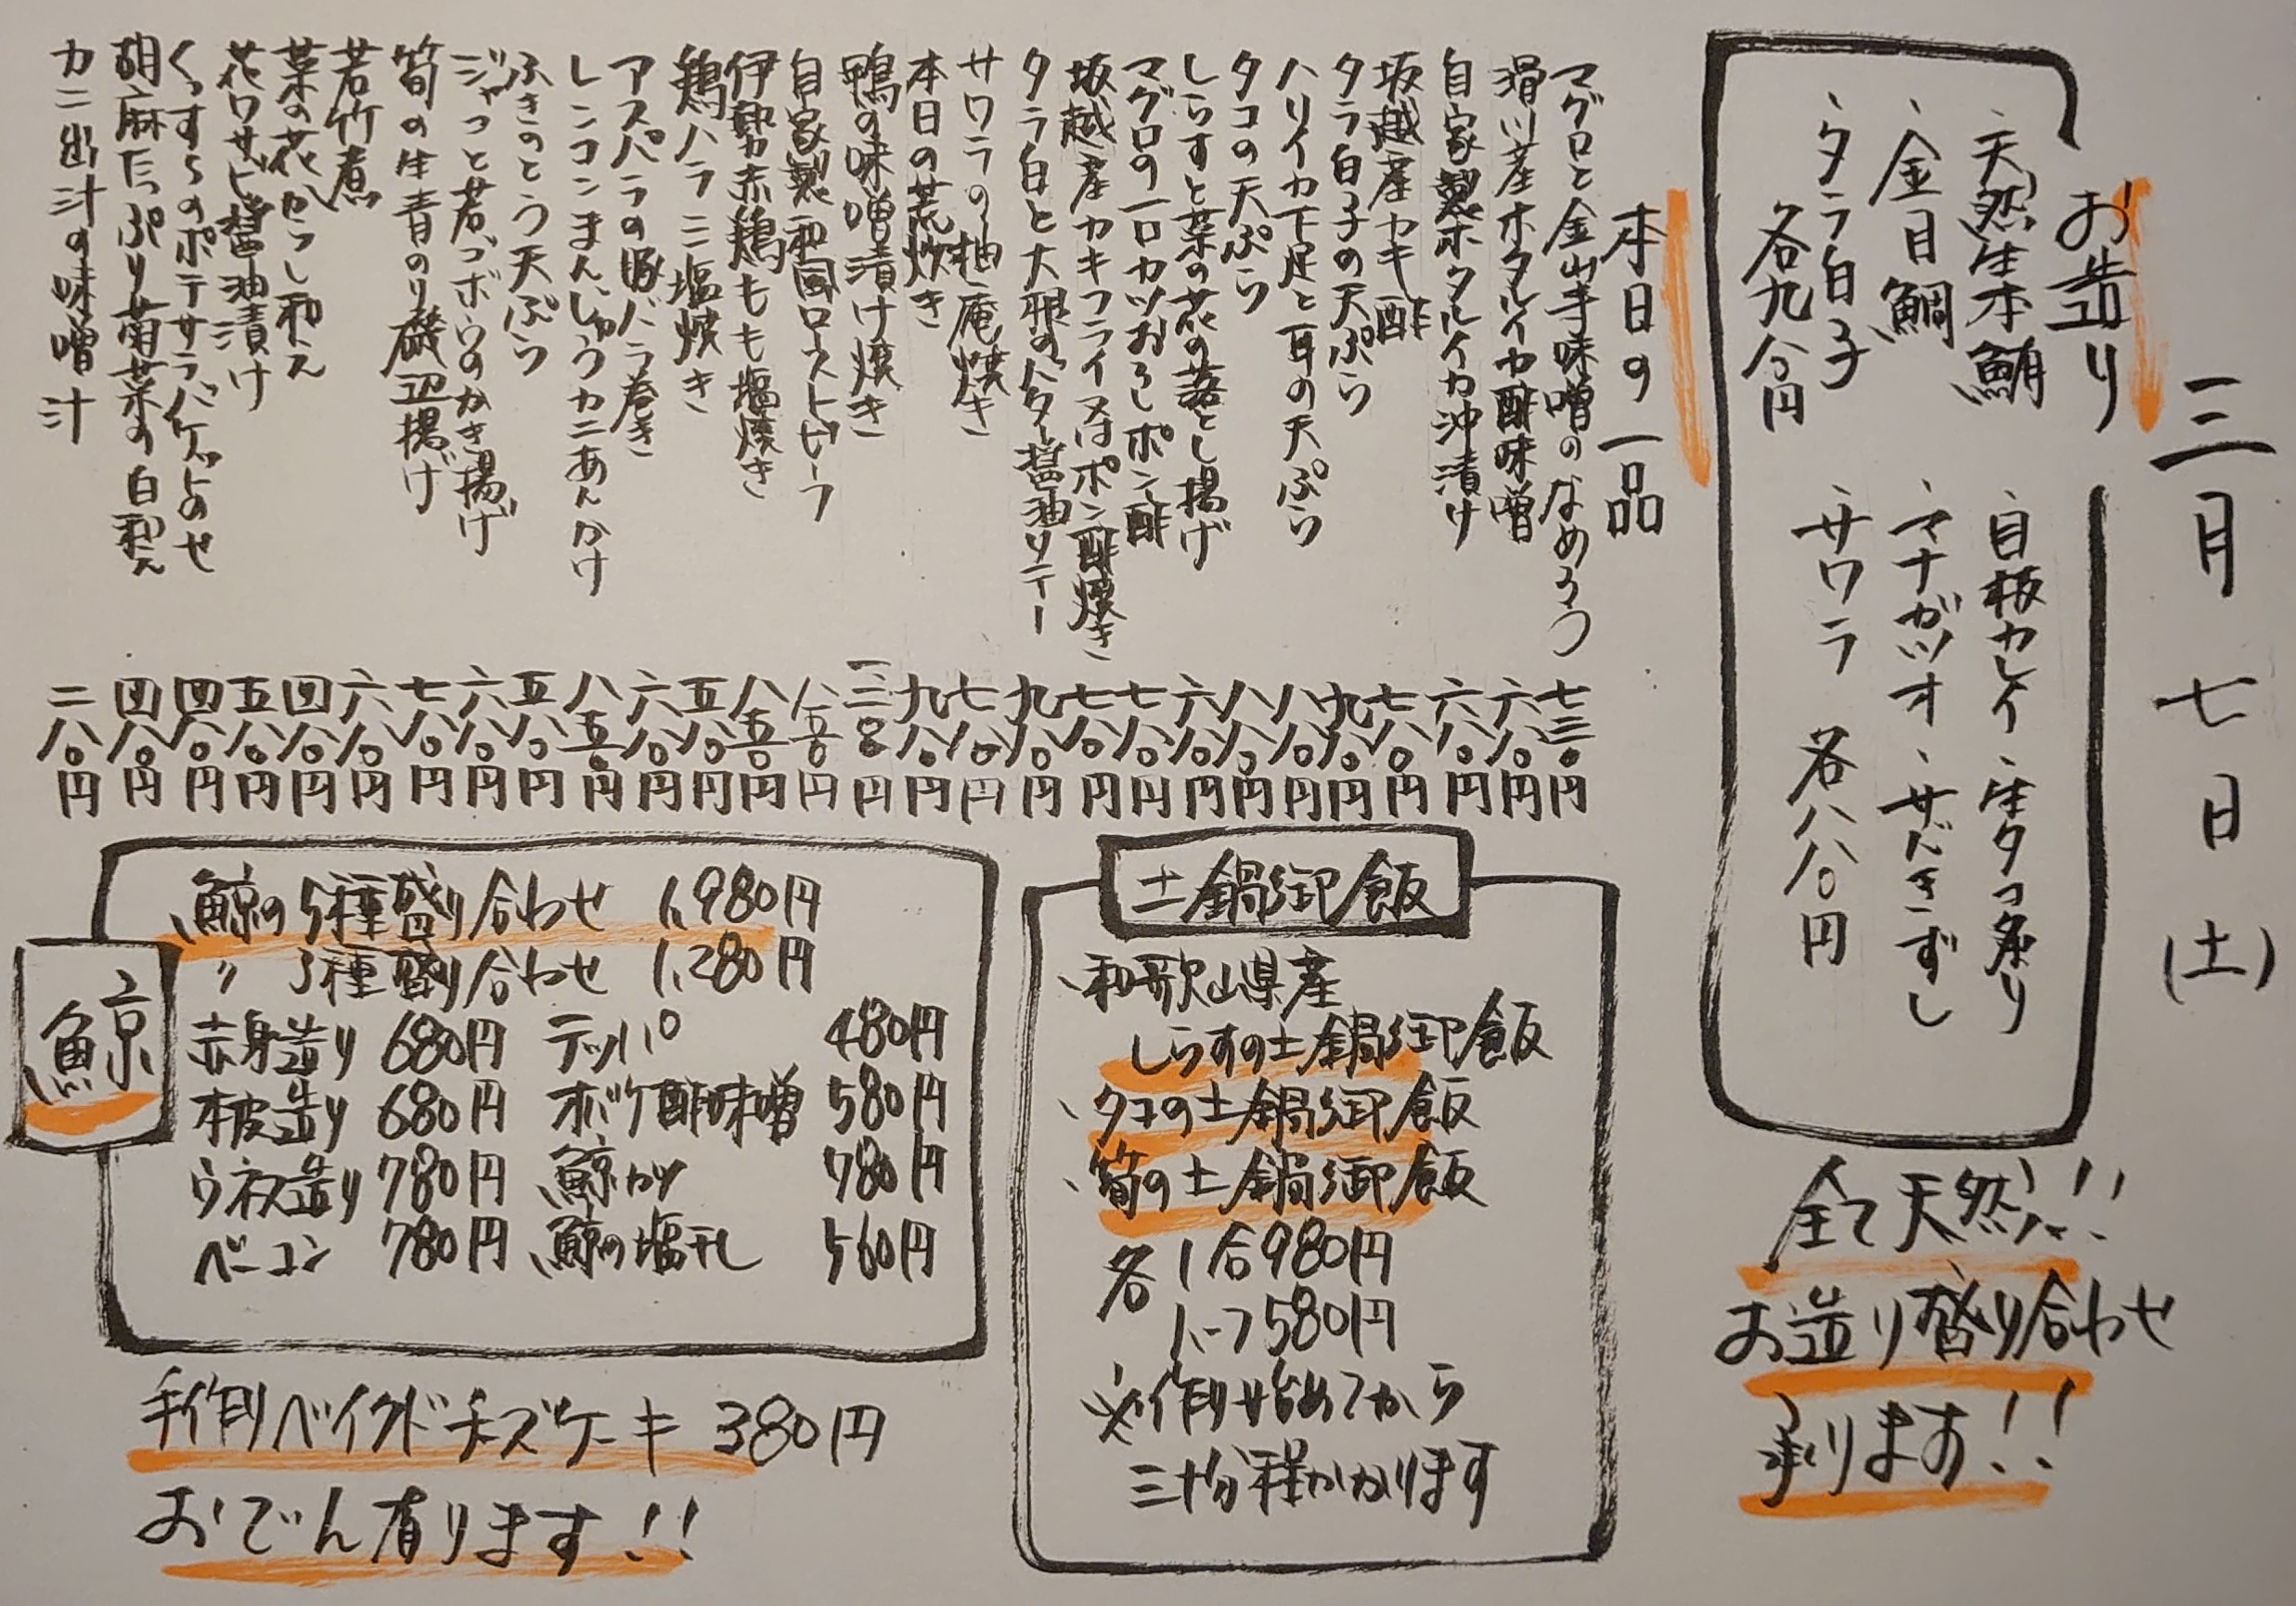 三月七日(土)
お造り
、天然生本鮪
、金目鯛
、タラ白子
各九八〇円
、目板カレイ、生タコ造り
、マナガツオ、サバきずし
、サワラ 各八八〇円
全て天然!!
お造り盛り合わせ
承ります!!
本日の一品
マグロと金山寺味噌のなめろう 七三〇円
滑川産ホタルイカ酢味噌 六八〇円
自家製ホタルイカ沖漬け 六八〇円
坂越産カキ酢 七八〇円
タラ白子の天ぷら 九八〇円
ハリイカ下足と耳の天ぷら 八八〇円
タコの天ぷら 八八〇円
しらすと菜の花の落とし揚げ 六八〇円
マグロの一口カツおろしポン酢 七八〇円
坂越産カキフライ又はポン酢焼き 七八〇円
タラ白と大根のバター醤油ソテー 九八〇円
サワラの柚庵焼き 七八〇円
本日の荒炊き 九八〇円
鴨の味噌漬け焼き 一二〇〇円
自家製和風ローストビーフ 八五〇円
伊勢赤鶏もも塩焼き 八五〇円
鶏ハラミ塩焼き 五八〇円
アスパラの豚バラ巻き 六八〇円
レンコンまんじゅうカニあんかけ 八五〇円
ふきのとう天ぷら 五八〇円
ジャコと若ゴボウのかき揚げ 六八〇円
筍の生青のり磯辺揚げ 七八〇円
若竹煮 六八〇円
菜の花からし和え 四八〇円
花ワサビ醤油漬け 五八〇円
くんすらのポテサラバゲットのせ 四八〇円
胡麻たっぷり菊菜の白和え 四八〇円
カニ出汁の味噌汁 二八〇円
土鍋御飯
、和歌山県産
しらすの土鍋御飯
、タコの土鍋御飯
、筍の土鍋御飯
各 1合980円
ハーフ580円
※作り始めてから
三十分程かかります
鯨
、鯨の5種盛り合わせ 1,980円
〃 3種盛り合わせ 1,280円
赤身造り 680円 テッパ 480円
本皮造り 680円 オバケ酢味噌 580円
ウネス造り 780円 鯨カツ 780円
ベーコン 780円 鯨の塩干し 560円
手作りベイクドチーズケーキ 380円
おでん有ります!!